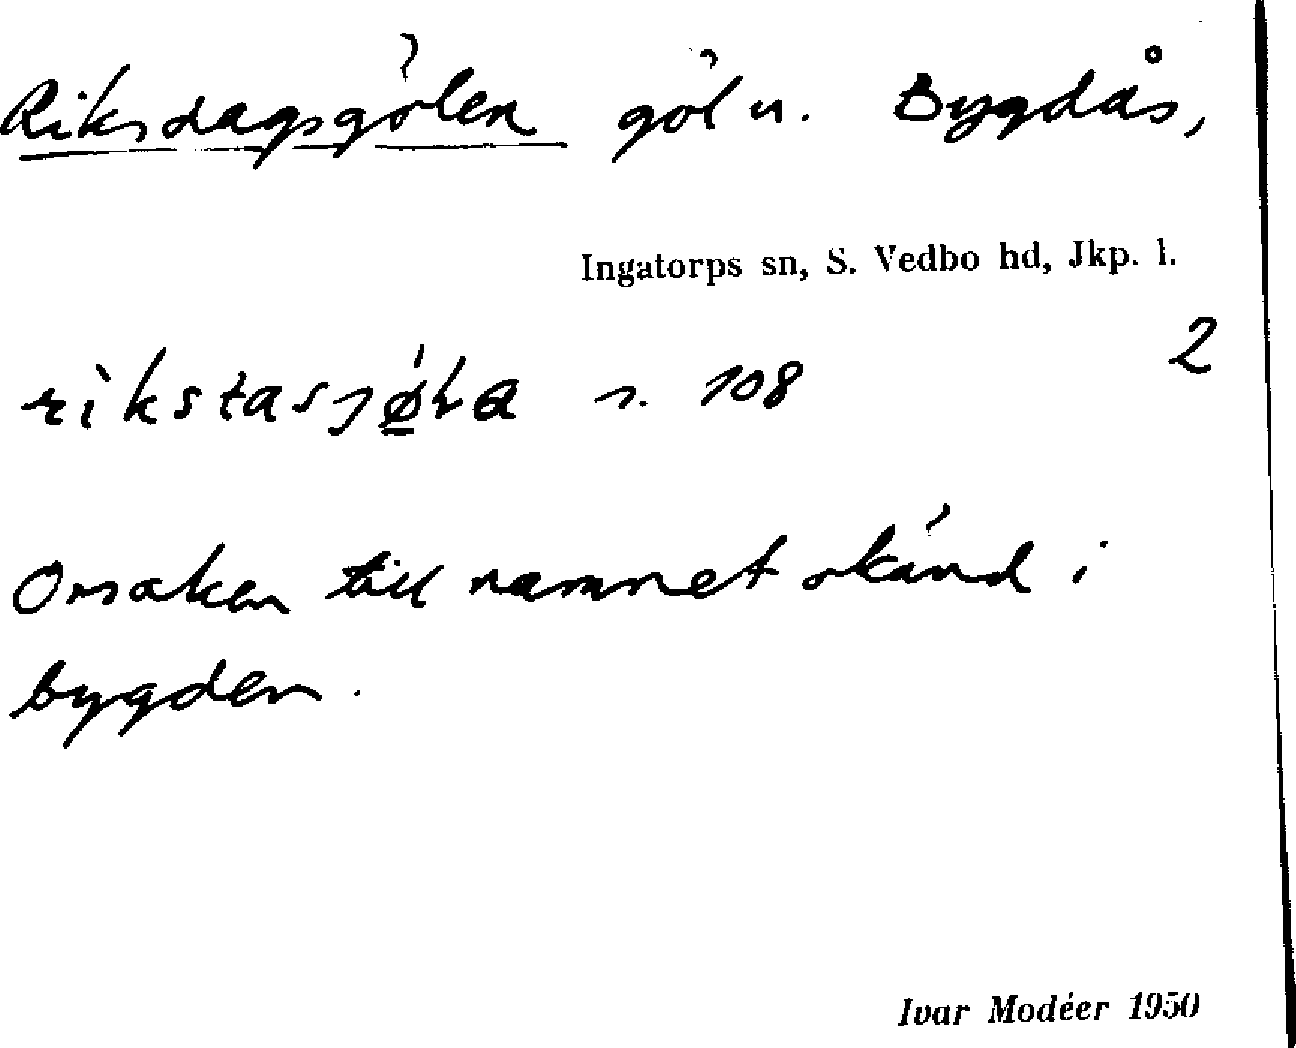 Riksdagsgölen göl u. Bygdås,
Ingatorps sn, S. Vedbo hd, Jkp. l.
2
s. 108
Orsaken till namnet okänd i
bygden.
Ivar Modéer 1950